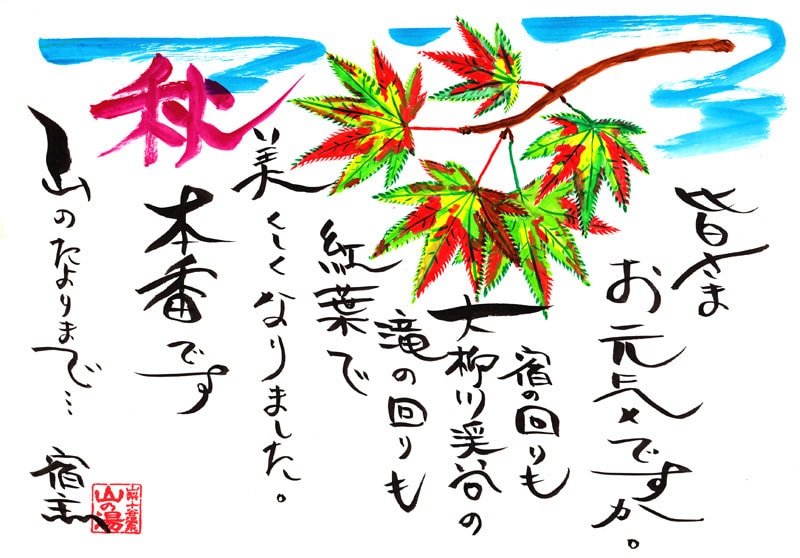 皆さま
お元気ですか。
宿の回りも
大柳川渓谷の
滝の回りも
紅葉で
美しくなりました。
秋
本番です
山のたよりまで…
宿主
山の湯